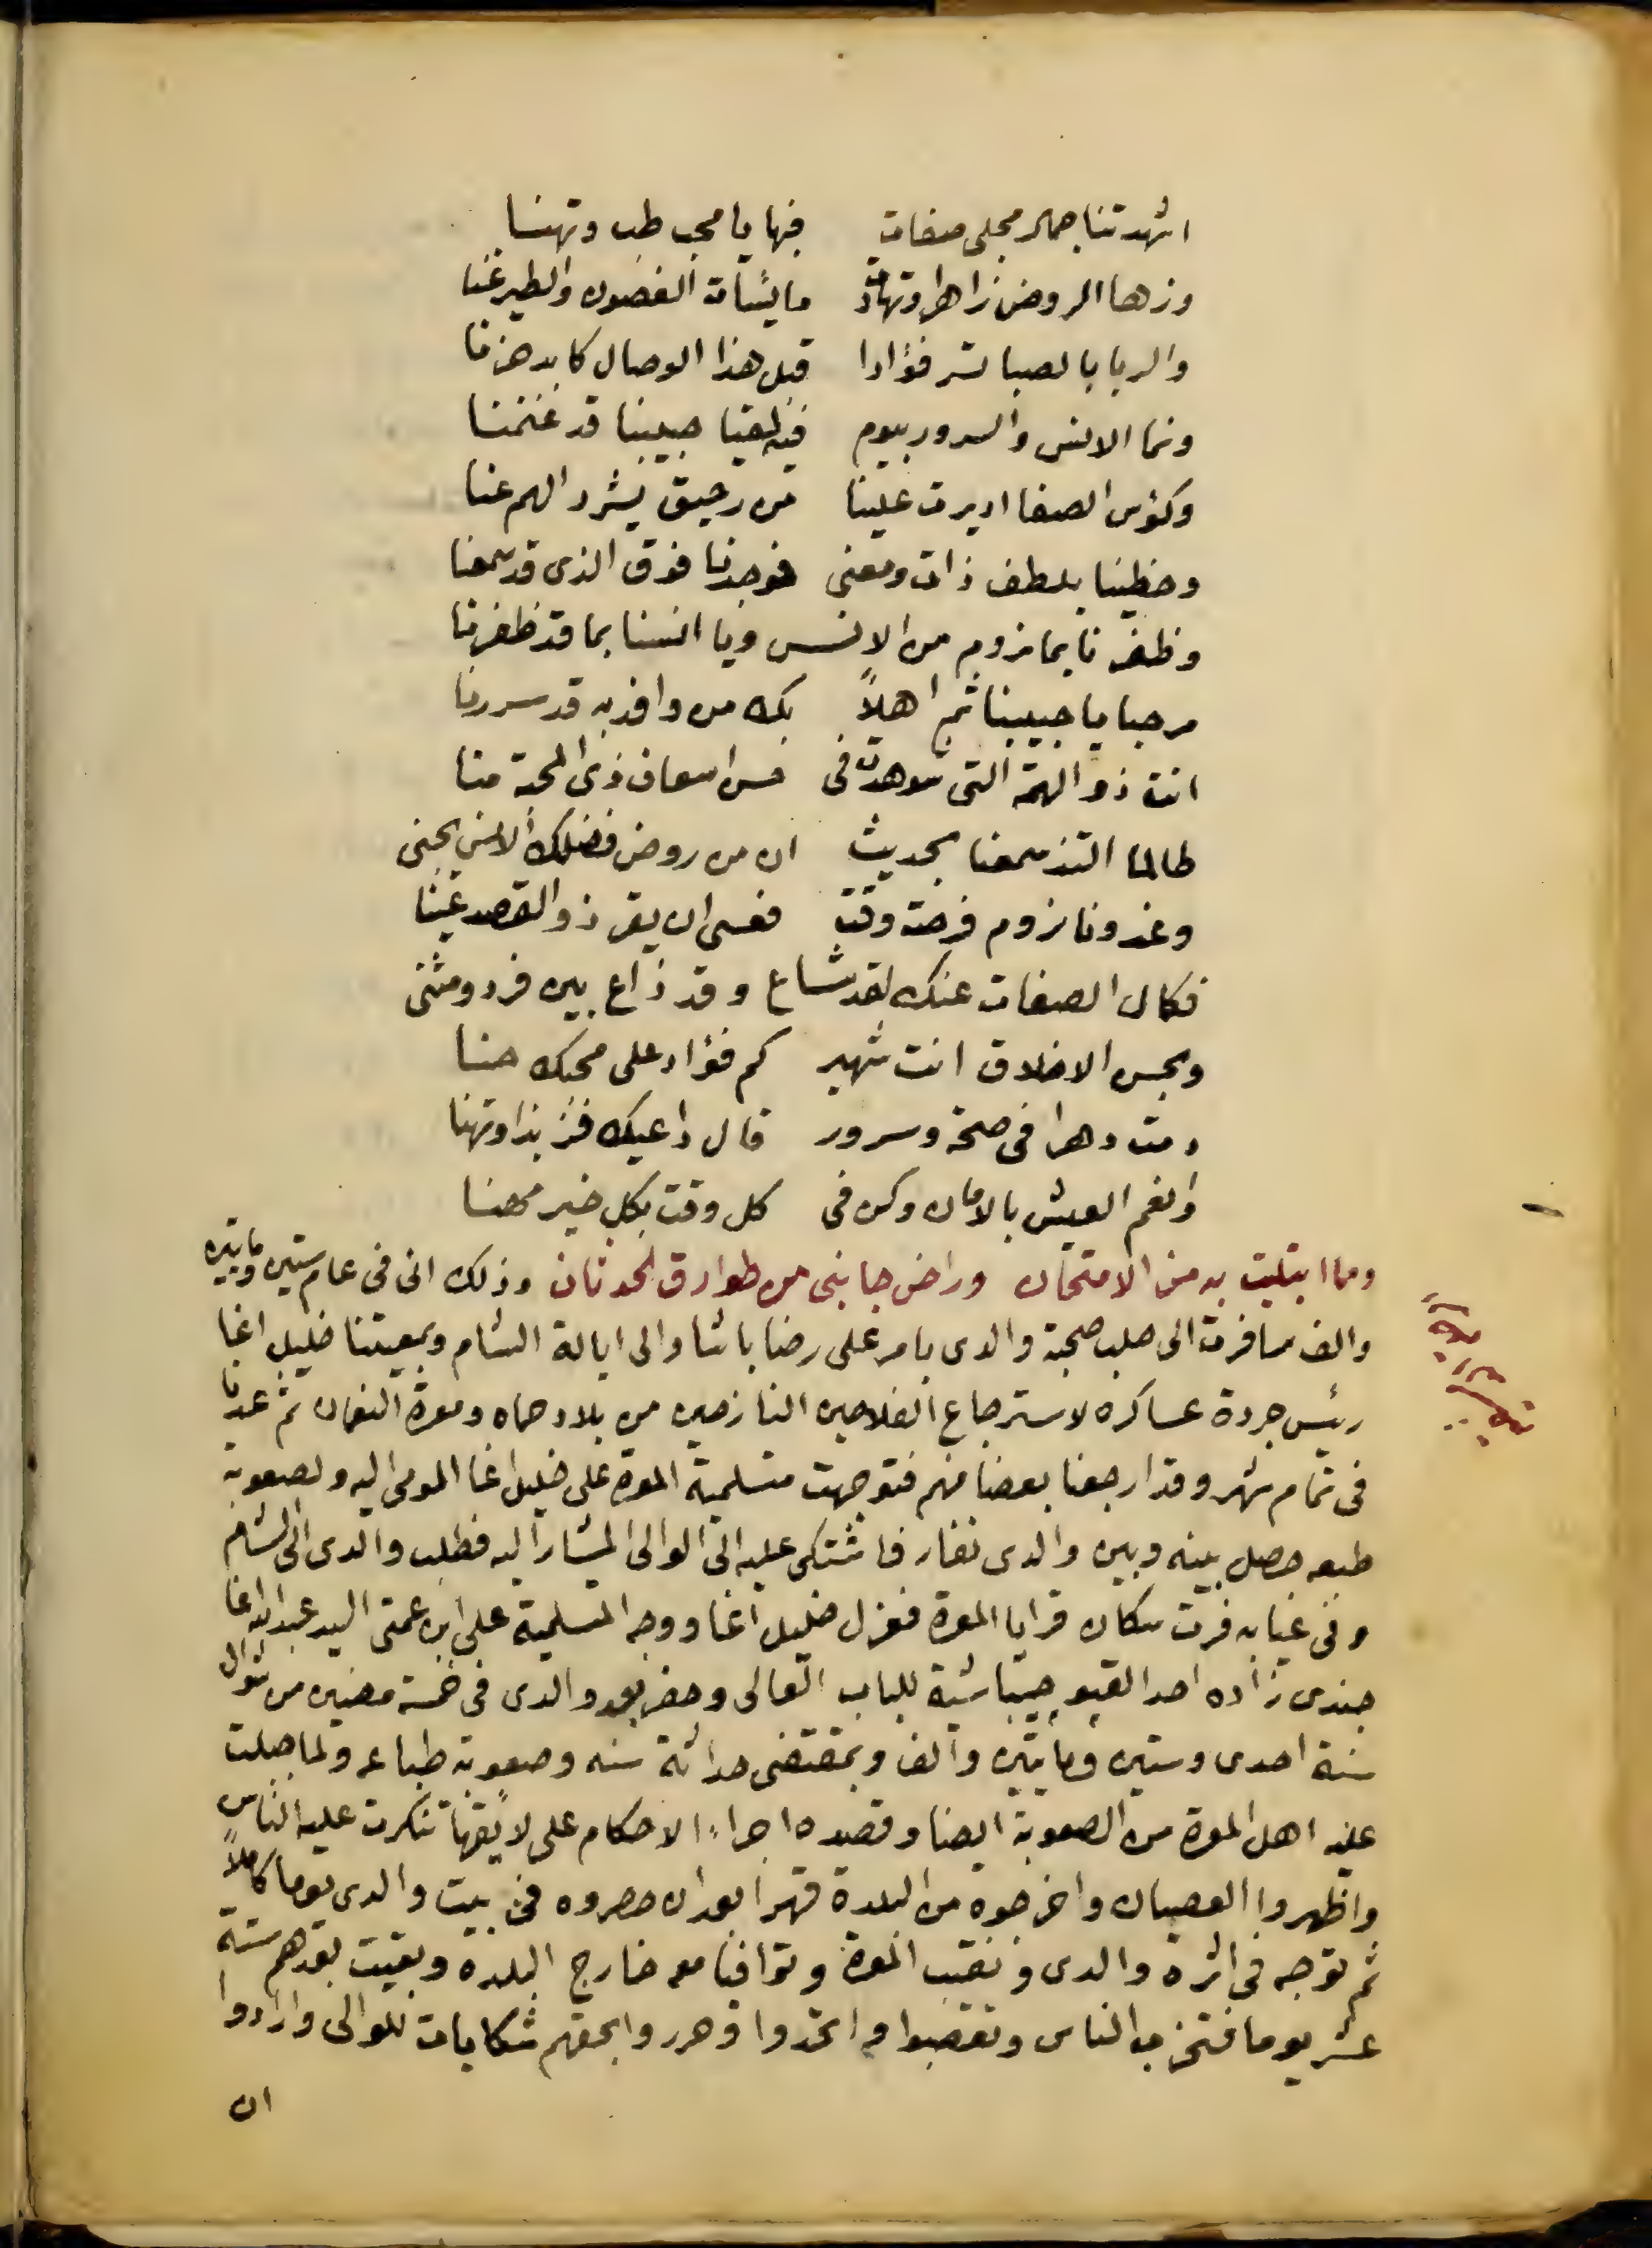 اشهدتنا جمال مجلى صفات فبها يا محب طب وتهنا
وزها الروض زاهرا وتهادت مائسات الغصون والطير غنا
والربا بالصبا تسر فؤادا قبل هذا الوصال كابد حزنا
ونما الانس والسرور بيوم فيه لقيا حبيبنا قد غنمنا
وكؤس الصفا اديرت علينا من رحيق يشرد الهم عنا
وحظينا بلطف ذات ومعنى فوجدنا فوق الذى قد سمعنا
وظفرنا بما نروم من الانس ويا انسنا بما قد ظفرنا
مرحبا يا حبيبنا ثم اهلاً بك من وافد به قد سررنا
انت ذو الهمة التى شوهدت فى حسن اسعاف ذى المحبة منا
طالما التذ سمعنا بحديث ان من روض فضلك الانس يجنى
وغدونا نروم فرصة وقت فعسى ان يقر ذو القصد عينا
فكمال الصفات عنك لقد شاع وقد ذاع بين فرد ومثنى
وبحسن الاخلاق انت شهير كم فؤاد على محبك حنا
دمت دهرا فى صحة وسرور قال داعيك فز بذا وتهنا
وانعم العيش بالامان وكن فى كل وقت بكل خير مهنا
ومما ابتليت به من الامتحان وراض جانبى من طوارق الحدثان وذلك انى فى عام ستين ومايتين
والف سافرت الى حلب صحبة والدى بامر على رضا باشا والى ايالة الشام وبمعيتنا خليل اغا
رئيس جردة عساكره لاسترجاع الفلاحين النازحين من بلاد حماه ومعرة النعمان ثم عدنا
فى تمام شهر وقد ارجعنا بعضا منهم فتوجهت متسلمية المعرة على خليل اغا المومى اليه ولصعوبة
طبعه حصل بينه وبين والدى نفار فاشتكى عليه الى الوالى المشار اليه فطلب والدى الى الشام
وفى غيابه فرت سكان قرايا المعرة فعزل خليل اغا ووجه المتسلمية على ابن عمتى السيد عبد الله اغا
جندى زاده احد القبوجيباشية للباب العالى وحضر بعد والدى فى خمسة مضين من شوال
سنة احدى وستين ومايتين والف وبمقتضى حداثة سنه وصعوبة طباعه ولما جبلت
عليه اهل المعرة من الصعوبة ايضا وقصده اجراء الاحكام على لايقها تنكرت عليه الناس
واظهروا العصيان واخرجوه من البلدة قهرا بعد ان حصروه فى بيت والدى يوما كاملاً
ثم توجه فى اثره والدى ونقيب المعرة وتوافيا معه خارج البلده وبقيت بعدهم ستة
عشر يوما فتحزب الناس وتعصبوا واتحدوا وحرروا بحقهم شكايات للوالى وارادوا
ان